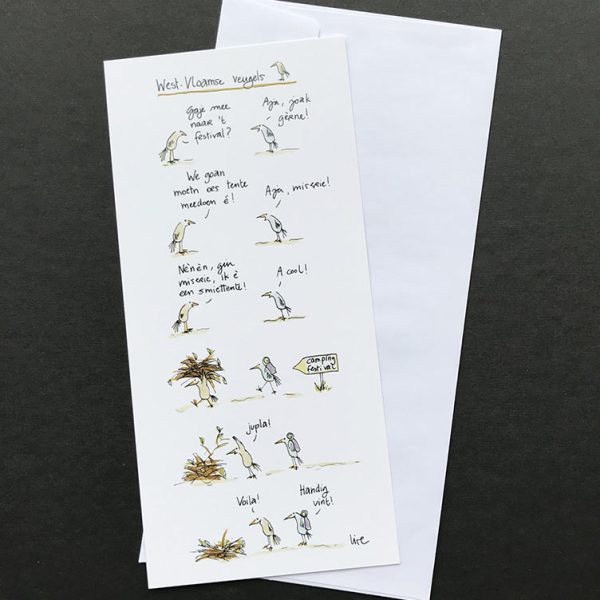 West-Vloamse veugels
Goje mee
naar 't
festival?
Aja, joak
gèrne!
We goan
moetn oes tente
meedoen é!
Aja, miserie!
Nènèn, gin
miserie, ik è
een smiettente!
A cool!
camping
festival
jupla!
Voila!
Handig
vint!
lire